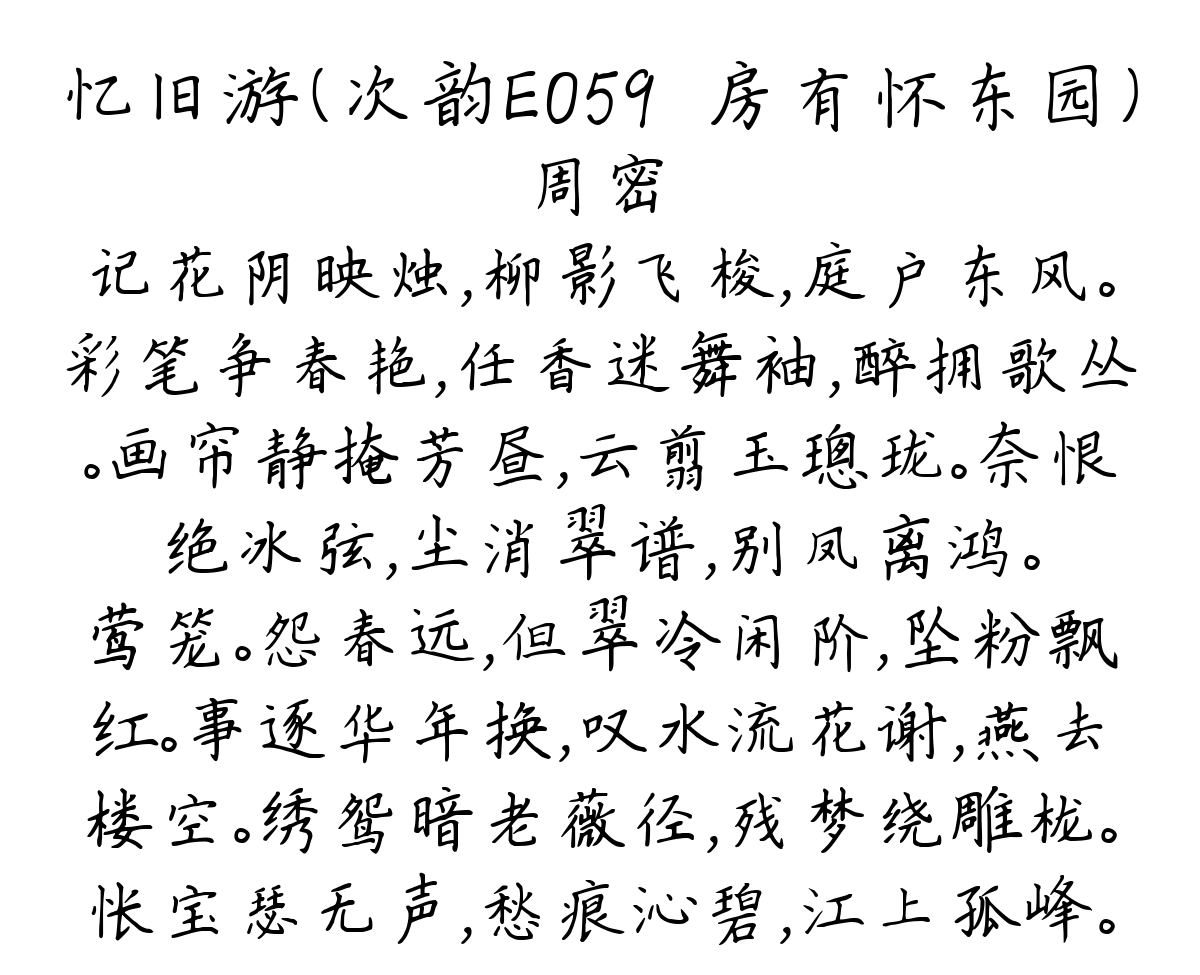 忆旧游(次韵E059 房有怀东园)
周密
记花阴映烛,柳影飞梭,庭户东风。
彩笔争春艳,任香迷舞袖,醉拥歌丛
。画帘静掩芳昼,云翦玉璁珑。奈恨
绝冰弦,尘消翠谱,别凤离鸿。
莺笼。怨春远,但翠冷闲阶,坠粉飘
红。事逐华年换,叹水流花谢,燕去
楼空。绣鸳暗老薇径,残梦绕雕栊。
怅宝瑟无声,愁痕沁碧,江上孤峰。